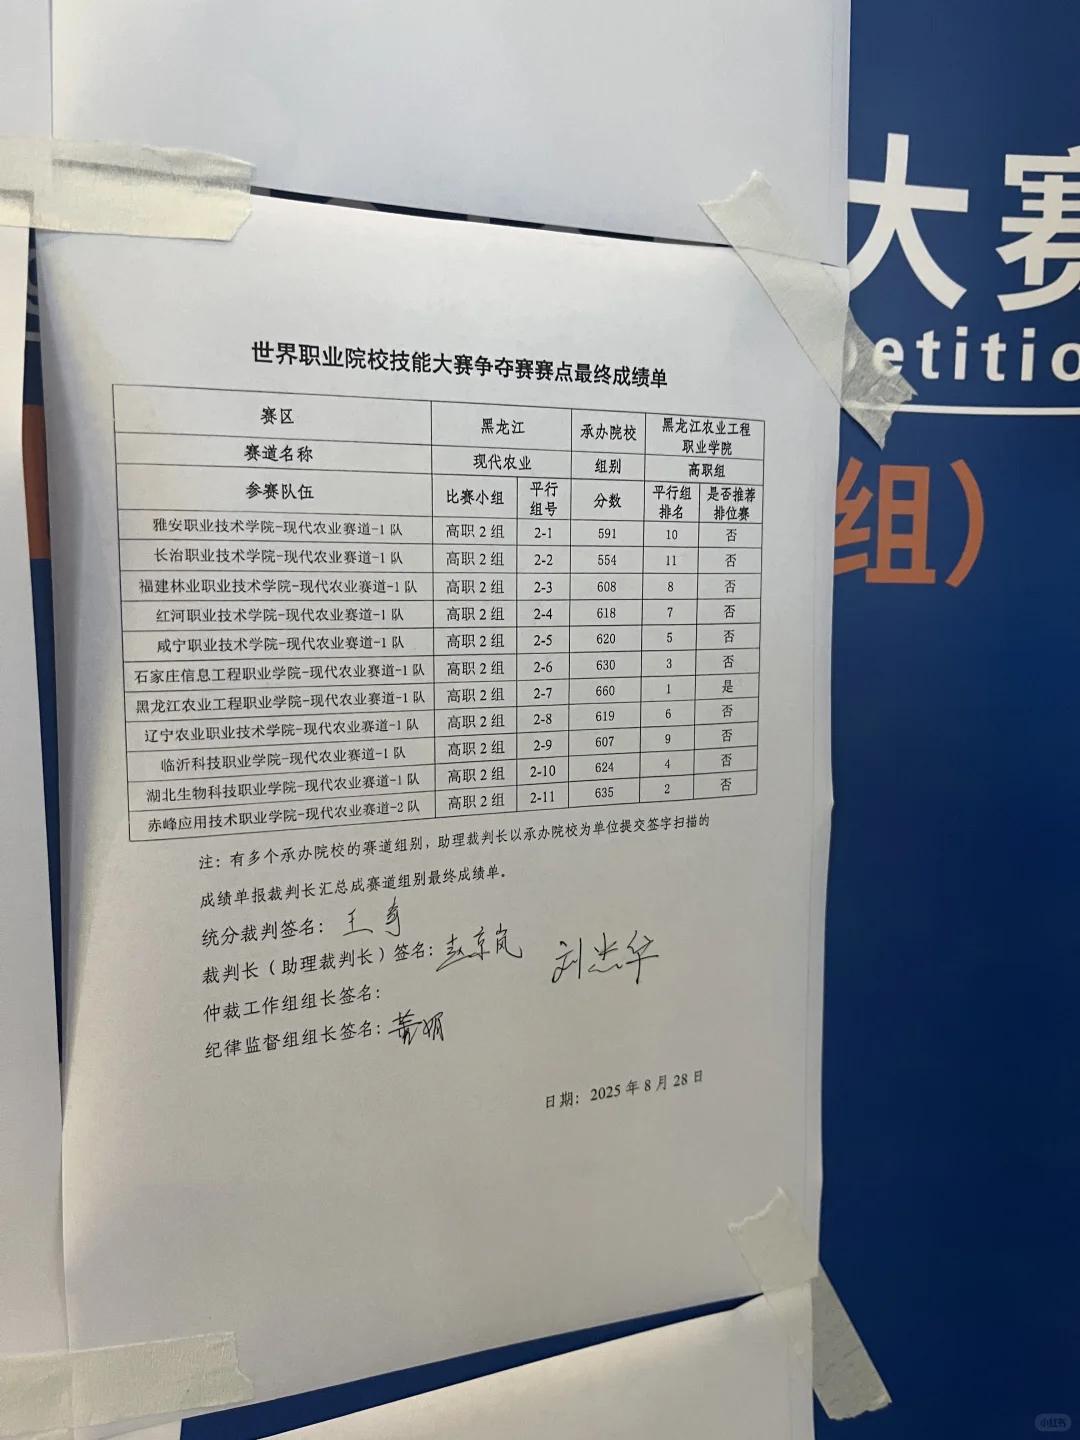 大赛
petitio
组）
世界职业院校技能大赛争夺赛赛点最终成绩单
赛区 黑龙江 承办院校 黑龙江农业工程职业学院
赛道名称 现代农业 组别 高职组
参赛队伍 比赛小组 平行组号 分数 平行组排名 是否推荐排位赛
雅安职业技术学院-现代农业赛道-1 队 高职 2 组 2-1 591 10 否
长治职业技术学院-现代农业赛道-1 队 高职 2 组 2-2 554 11 否
福建林业职业技术学院-现代农业赛道-1 队 高职 2 组 2-3 608 8 否
红河职业技术学院-现代农业赛道-1 队 高职 2 组 2-4 618 7 否
咸宁职业技术学院-现代农业赛道-1 队 高职 2 组 2-5 620 5 否
石家庄信息工程职业学院-现代农业赛道-1 队 高职 2 组 2-6 630 3 否
黑龙江农业工程职业学院-现代农业赛道-1 队 高职 2 组 2-7 660 1 是
辽宁农业职业技术学院-现代农业赛道-1 队 高职 2 组 2-8 619 6 否
临沂科技职业学院-现代农业赛道-1 队 高职 2 组 2-9 607 9 否
湖北生物科技职业学院-现代农业赛道-1 队 高职 2 组 2-10 624 4 否
赤峰应用技术职业学院-现代农业赛道-2 队 高职 2 组 2-11 635 2 否
注：有多个承办院校的赛道组别，助理裁判长以承办院校为单位提交签字扫描的
成绩单报裁判长汇总成赛道组别最终成绩单。
统分裁判签名：王
裁判长（助理裁判长）签名：赵京岚 刘杰华
仲裁工作组组长签名：
纪律监督组组长签名：
日期：2025 年 8 月 28 日
小红书